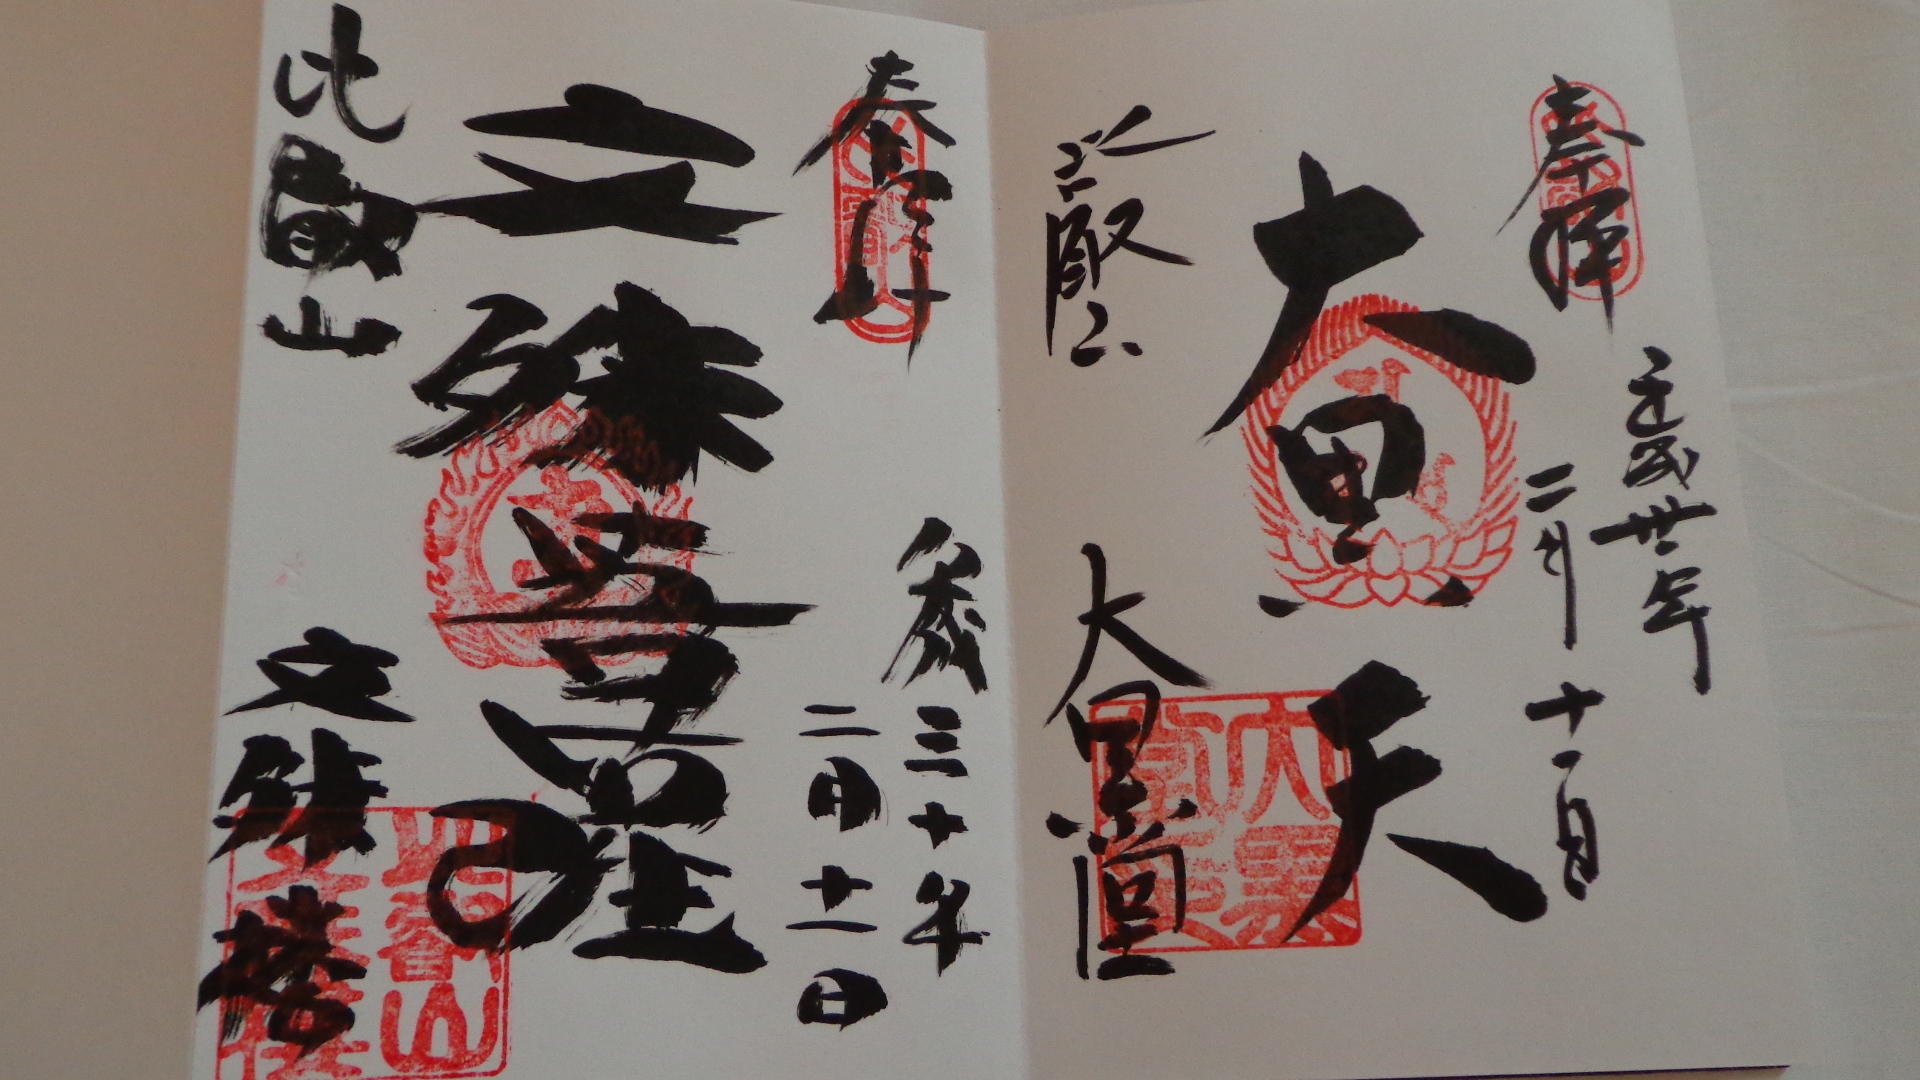 奉拝
平成丗年
二月十一日
大黒天
比叡山
大黒堂
奉拝
平成三十年
二月十一日
文殊菩薩
比叡山
文殊楼
比叡山
文殊楼